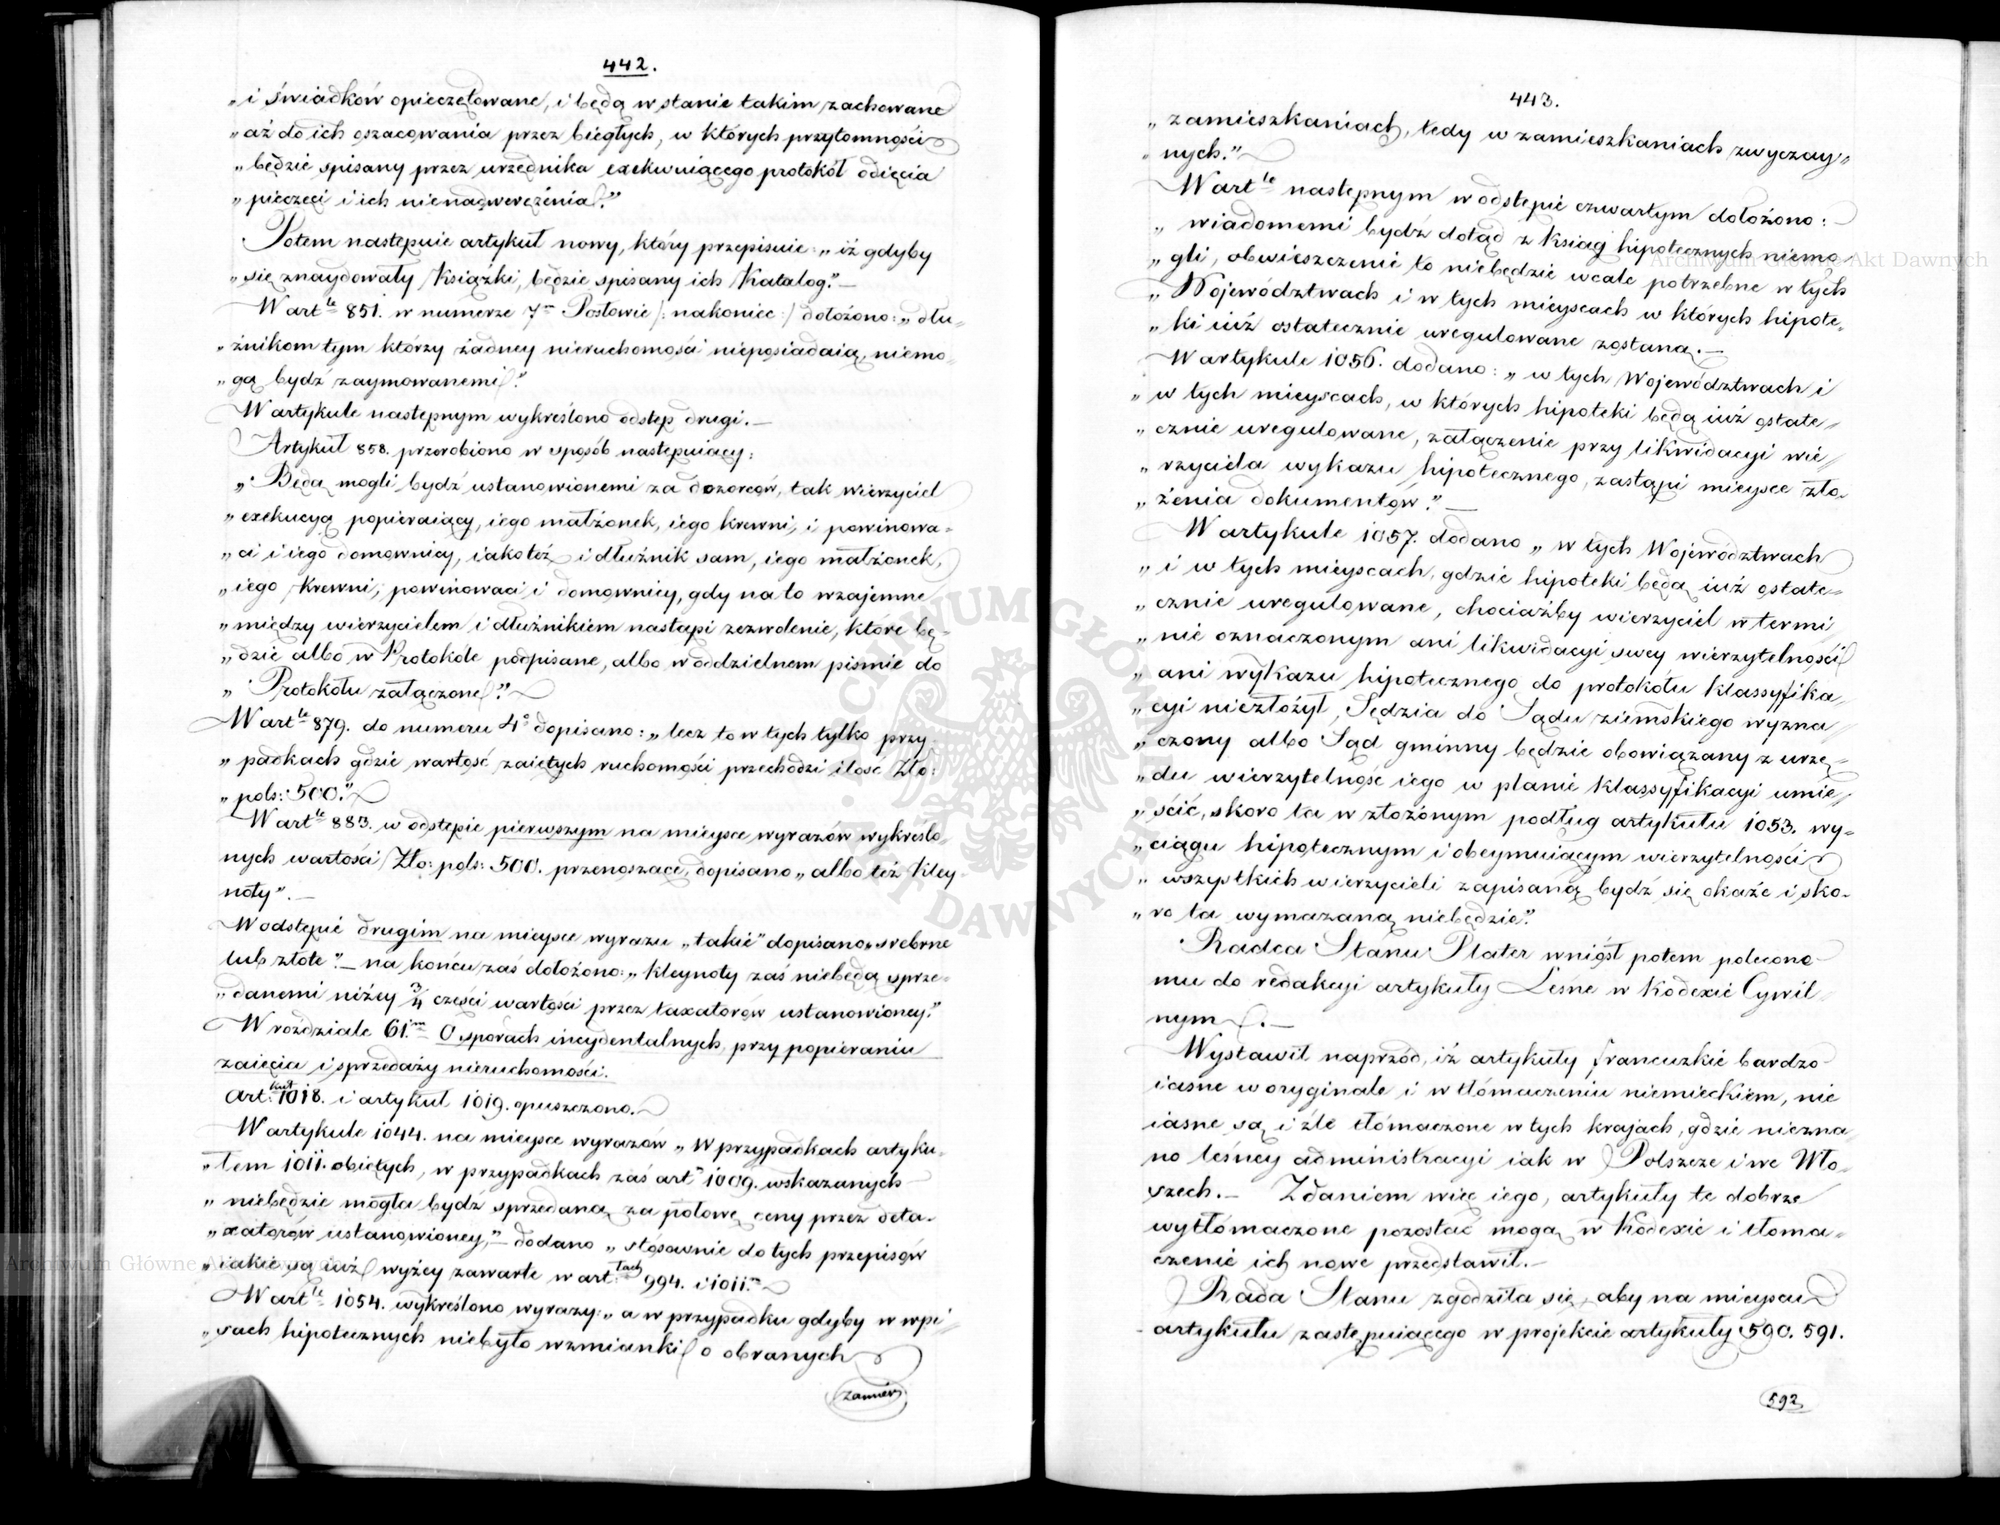 442.
„i świadków opieczętowane, i będą w stanie takim zachowane
„aż do ich oszacowania przez biegłych, w których przytomności
„będzie spisany przez urzędnika exekwuiącego protokół odięcia
„pieczęci i ich nienadwerężenia.”
Potem następuie artykuł nowy, który przepisuie: „iż gdyby
„się znaydowały Książki, będzie spisany ich Katalog.” —
W artle 851. w numerze 7m Po słowie /: nakoniec :/ dołożono: „dłu-
„żnikom tym którzy żadney nieruchomości nieposiadaią, niemo-
„gą bydź zaymowanemi.”
W artykule następnym wykreślono odstęp drugi. —
Artykuł 858. przerobiono w sposób następuiący:
„Będą mogli bydź ustanowionemi za dozorców, tak wierzyciel
„exekucyą popieraiący, iego małżonek, iego krewni, i powinowa-
„ci i iego domownicy, iako też i dłużnik sam, iego małżonek,
„iego krewni, powinowaci i domownicy, gdy na to wzajemne
„między wierzycielem i dłużnikiem nastąpi zezwolenie, które bę-
„dzie albo w Protokóle podpisane, albo w oddzielnem piśmie do
„Protokołu załączone.”
W artle 879. do numeru 4o dopisano: „lecz to w tych tylko przy-
„padkach gdzie wartość zaiętych ruchomości przechodzi ilość Zło:
„pols: 500.”
W artle 883. w odstępie pierwszym na mieysce wyrazów wykreślo-
nych wartości Zło: pols: 500. przenoszące, dopisano „albo też kley-
noty”. —
W odstępie drugim na mieysce wyrazu „takie” dopisano „srebrne
lub złote”. — na końcu zaś dołożono: „Kleynoty zaś niebędą sprze-
„danemi niżey 3/4 części wartości przez taxatorów ustanowioney.”
W rozdziale 61.m O sporach incydentalnych przy popieraniu
zaięcia i sprzedaży nieruchomości.
Art:kuł 1018. i artykuł 1019. opuszczono.
W artykule 1044. na mieysce wyrazów „W przypadkach artyku-
„łem 1011. obiętych, w przypadkach zaś art 1009. wskazanych
„niebędzie mogła bydź sprzedaną za połowę ceny przez deta-
„xatorów ustanowioney,” — dodano „stósownie do tych przepisów
„iakie są iuż wyżey zawarte w art:łach 994. i 1011.m”
W artle 1054. wykreślono wyrazy: „a w przypadku gdyby w wpi-
„sach hipotecznych niebyło wzmianki o obranych
zamiesz
443.
„zamieszkaniach, tedy w zamieszkaniach zwyczay-
„nych.”
W artle następnym w odstępie czwartym dołożono: —
„wiadomemi bydź dotąd z Ksiąg hipotecznych niemo-
„gli, obwieszczenie to niebędzie wcale potrzebne w tych
„Województwach i w tych mieyscach w których hipote-
„ki iuż ostatecznie uregulowane zostaną. —
W artykule 1056. dodano: „w tych Województwach i
„w tych mieyscach, w których hipoteki będą iuż ostate-
„cznie uregulowane, załączenie przy likwidacyi wie-
„rzyciela wykazu hipotecznego, zastąpi mieysce zło-
„żenia dokumentów.” —
W artykule 1057. dodano „w tych Województwach
„i w tych mieyscach, gdzie hipoteki będą iuż ostate-
„cznie uregulowane, chociażby wierzyciel w termi-
„nie oznaczonym ani likwidacyi swey wierzytelności
„ani wykazu hipotecznego do protokołu klassyfika-
„cyi niezłożył, Sędzia do Sądu ziemskiego wyzna-
„czony albo Sąd gminny będzie obowiązany z urzę-
„du wierzytelność iego w planie klassyfikacyi umie-
„ścić, skoro ta w złożonym podług artykułu 1053. wy-
„ciągu hipotecznym i obeymuiącym wierzytelności
„wszystkich wierzycieli zapisaną bydź się okaże i sko-
„ro ta wymazaną niebędzie”.
Radca Stanu Plater wniósł potem polecone
mu do redakcyi artykuły Leśne w Kodexie Cywil-
nym. —
Wystawił naprzód, iż artykuły francuzkie bardzo
iasne w oryginale i w tłómaczeniu niemieckiem, nie
iasne są i źle tłómaczone w tych krajach, gdzie niezna-
no leśney administracyi iak w Polszcze i we Wło-
szech. — Zdaniem więc iego, artykuły te dobrze
wytłómaczone pozostać mogą w Kodexie i tłoma-
czenie ich nowe przedstawił. —
Rada Stanu zgodziła się, aby na mieyscu
artykułu zastępuiącego w projekcie artykuły 590. 591.
592
Archiwum Główne Akt Dawnych
ARCHIWUM GŁÓWNE AKT DAWNYCH